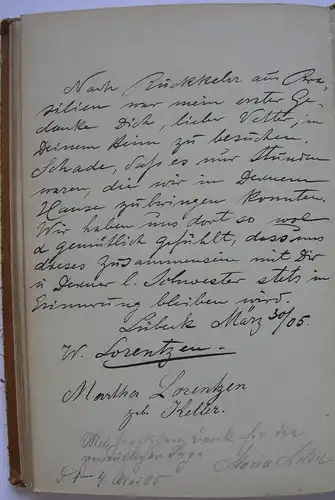 Nach Rückkehr aus Bra-
silien war mein erster Ge-
danke Dich, lieber Vetter, in
Deinem Heim zu besuchen.
Schade, daß es nur Stunden
waren, die wir in Deinem
Hause zubringen konnten.
Wir haben uns dort so wol
& gemütlich gefühlt, dass uns
dieses Zusammensein mit Dir
u Deiner l. Schwester stets in
Erinnerung bleiben wird.
Lübeck März 30/05.
W. Lorentzen.
Martha Lorentzen
geb. Keller.
Dank für die
Tage
4. Mai 05 Maria